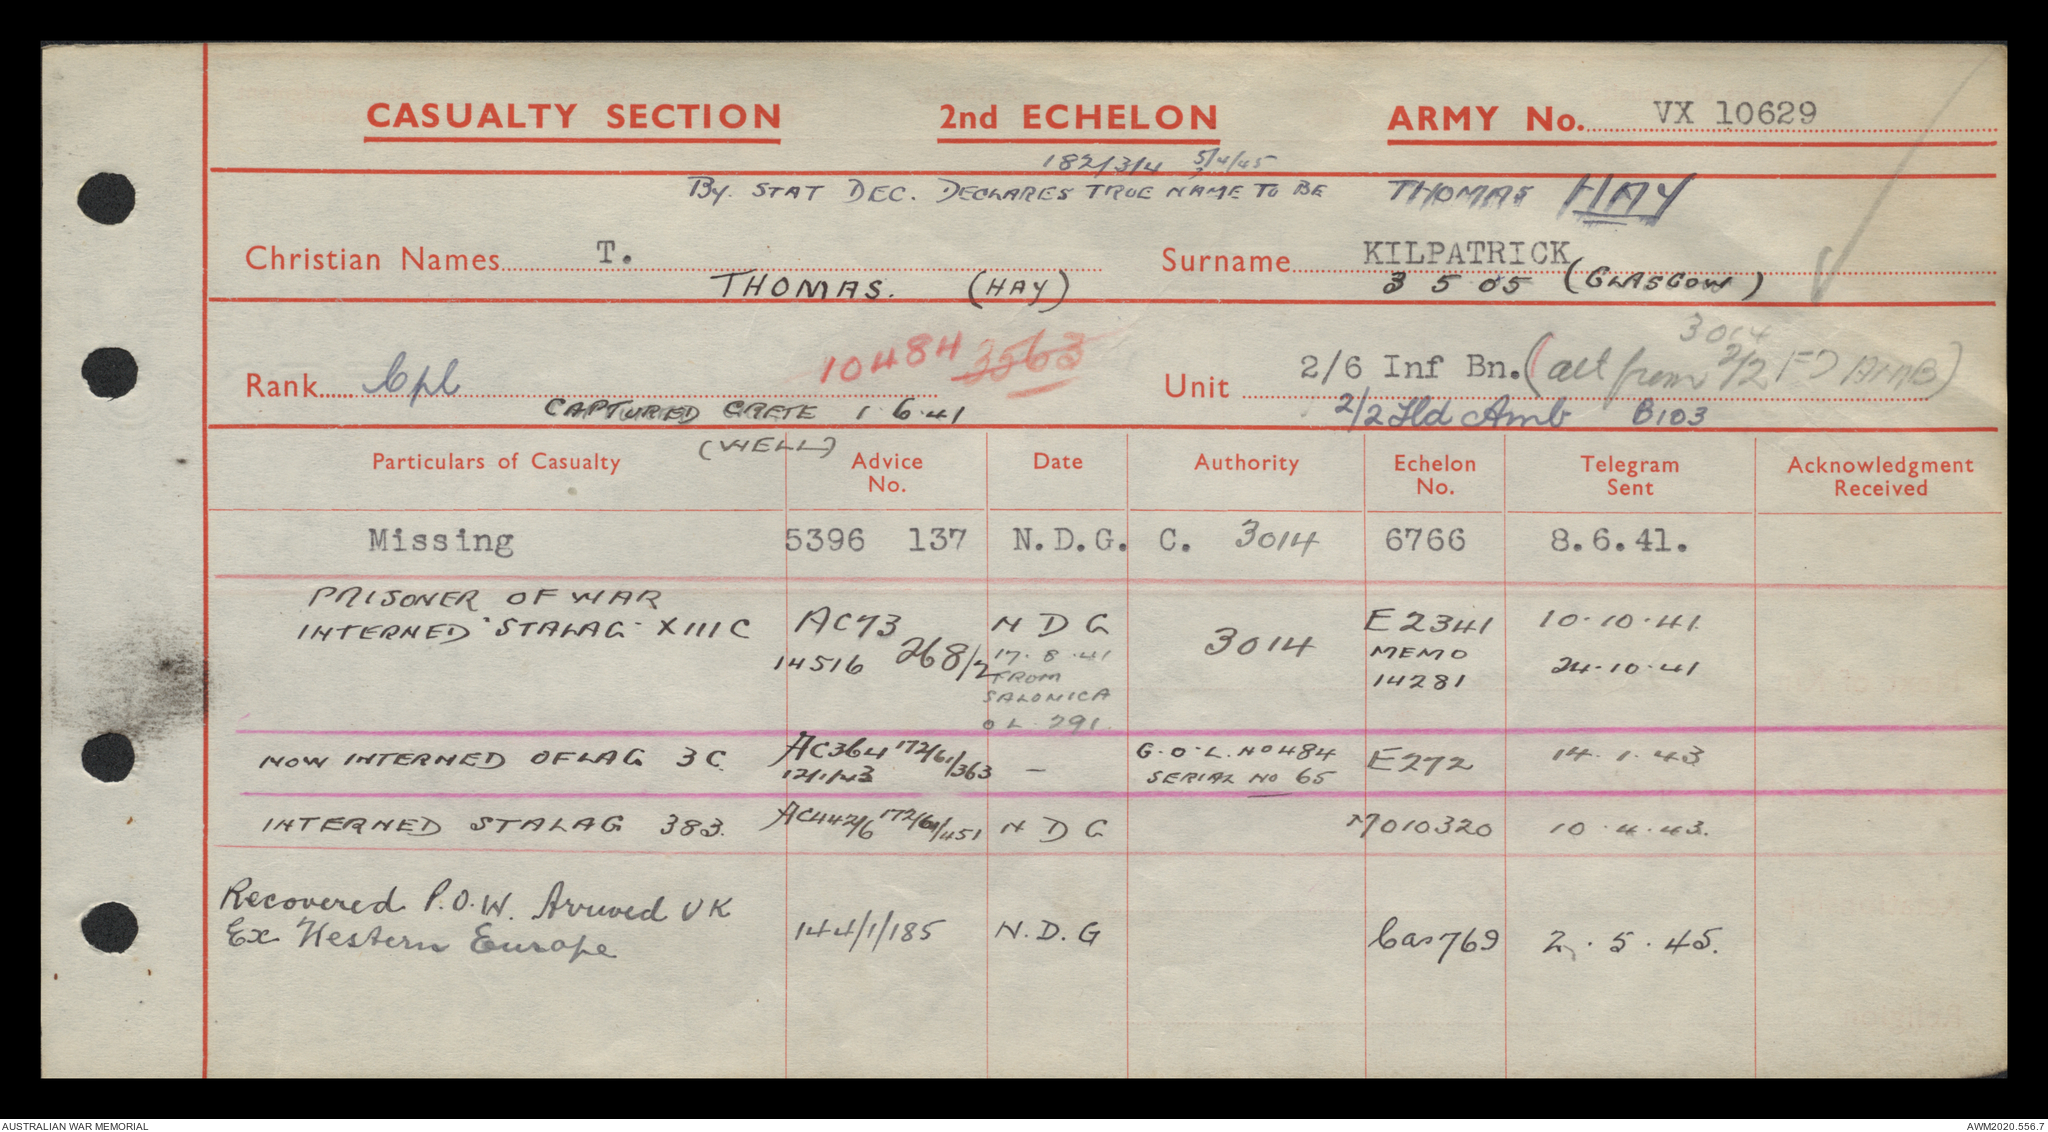 CASUALTY SECTION 2nd ECHELON ARMY No. VX 10629
182/3/4 5/4/45
By. STAT DEC. DECLARES TRUE NAME TO BE THOMAS HAY
Christian Names T. Surname KILPATRICK
THOMAS. (HAY) 3 5 05 (GLASGOW)
3014
10484 3563
Rank Cpl Unit 2/6 Inf Bn. (alt from 2/2 FD AMB)
CAPTURED CRETE 1.6.41 2/2 Fld Amb B103
(WELL)
Particulars of Casualty Advice No. Date Authority Echelon No. Telegram Sent Acknowledgment Received
Missing 5396 137 N.D.G. C. 3014 6766 8.6.41.
PRISONER OF WAR
INTERNED "STALAG" XIIIC AC73 N D G 3014 E2341 10.10.41.
14516 268/2 17.8.41 MEMO 24.10.41
FROM 14281
SALONICA
O L 291.
NOW INTERNED OFLAG 3C. AC364 172/61/363 — G.O.L. NO 484 E272 14.1.43
12/1/43 SERIAL NO 65
INTERNED STALAG 383. AC442/6 172/61/451 N D G M010320 10.4.43.
Recovered P.O.W. Arrived UK
Ex Western Europe 144/1/185 N.D.G Cas769 2.5.45.
AUSTRALIAN WAR MEMORIAL AWM2020.556.7